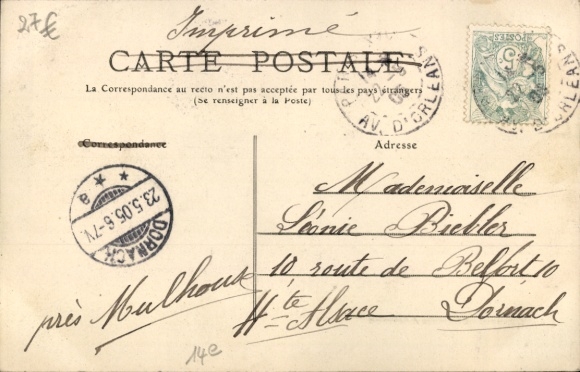 27€
Imprimé
CARTE POSTALE
La Correspondance au recto n'est pas acceptée par tous les pays étrangers
(Se renseigner à la Poste)
AV. D'ORLÉANS
POSTES
5
Correspondance
Adresse
Mademoiselle
Léonie Biebler
10 route de Belfort 10
Hte Alsace Dornach
près Mulhouse
DORNACH
23.5.05.6-7V.
* * a
14e